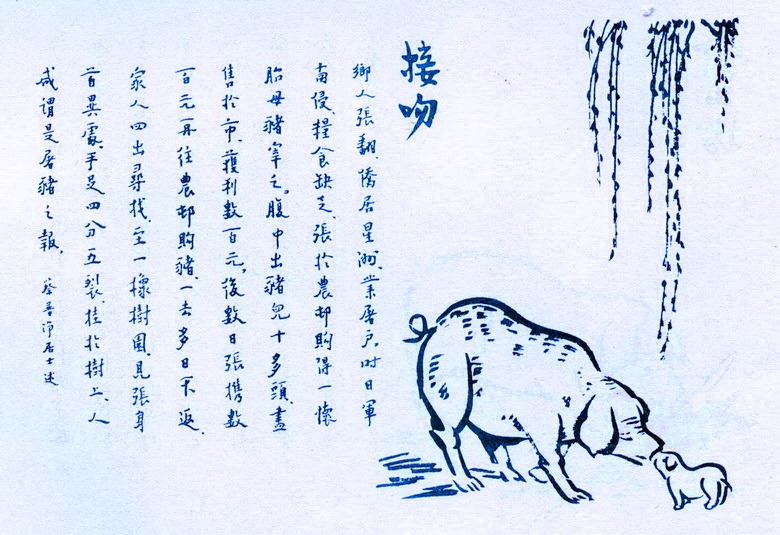 接吻
鄉人張翻、僑居星洲、業屠戶。时日軍
南侵、糧食缺乏、張於農邨購得一懷
胎母豬宰之。腹中出豬兒十多頭、盡
售於市、獲利數百元。後數日張攜數
百元再往農邨購豬、一去多日不返、
家人四出尋找、至一橡樹園、見張身
首異處、手足四分五裂、挂於樹上、人
咸謂是屠豬之報。 蔡善淨居士述